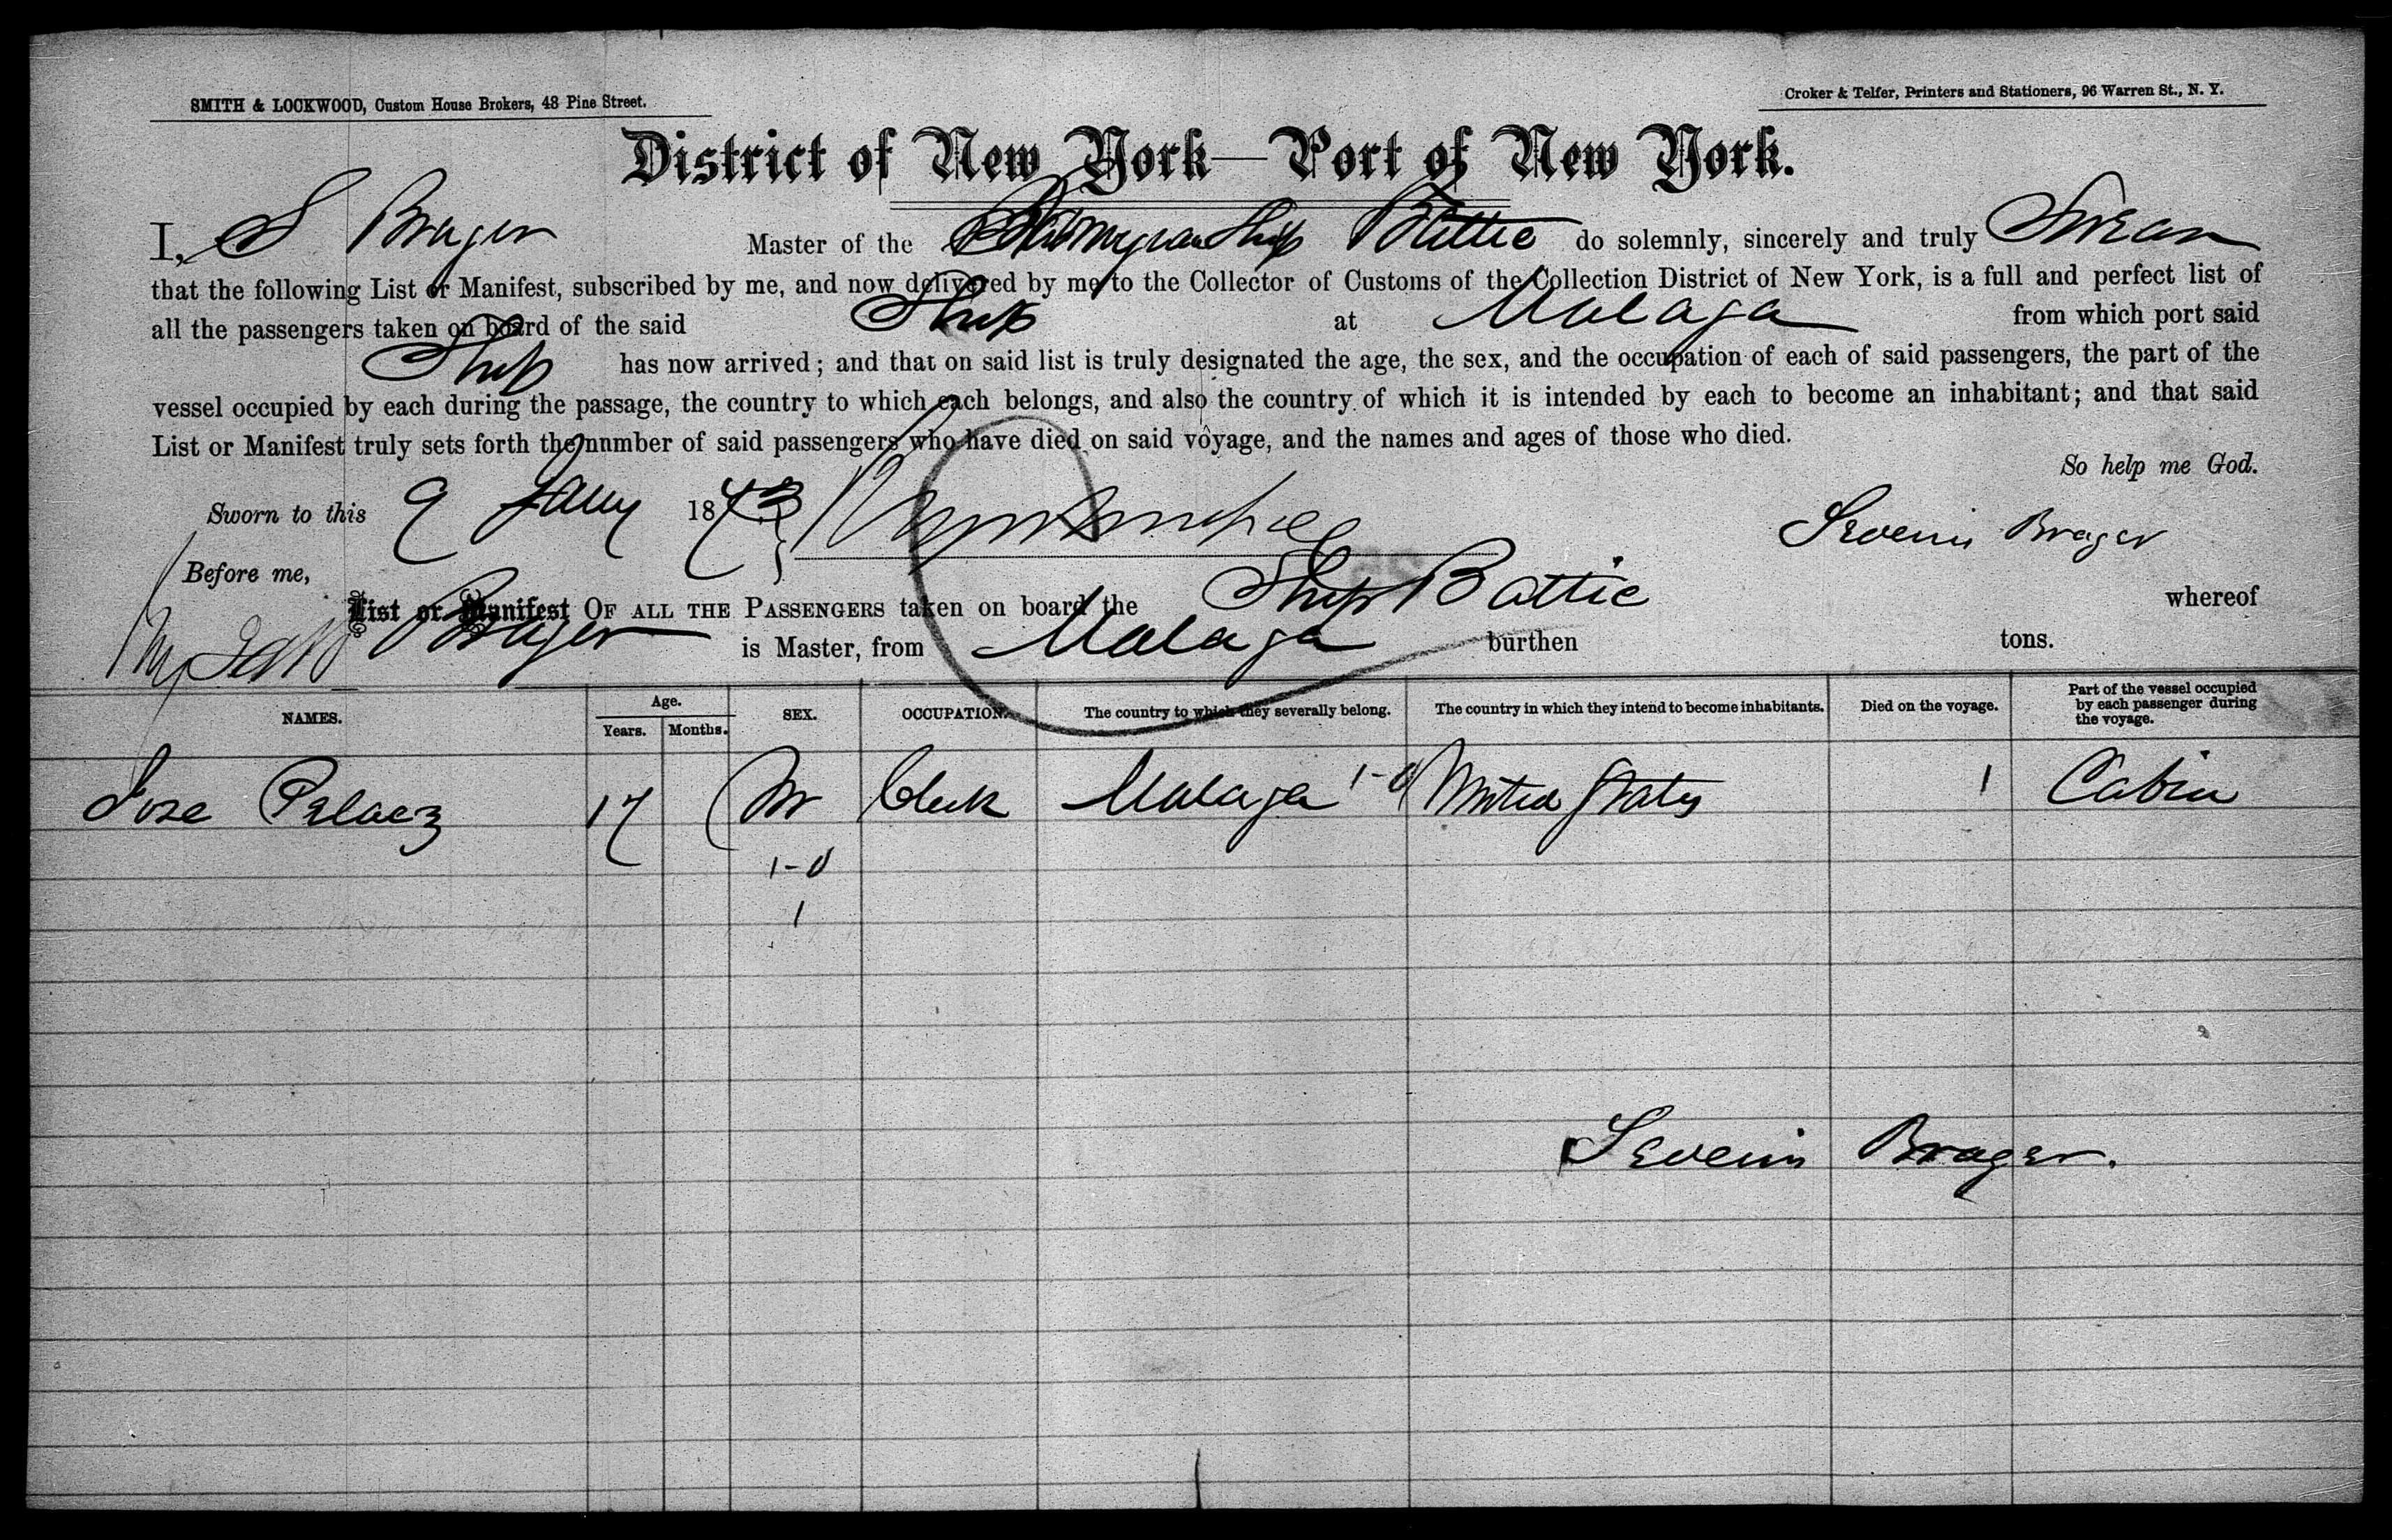 SMITH & LOCKWOOD, Custom House Brokers, 48 Pine Street.
Croker & Telfer, Printers and Stationers, 96 Warren St., N. Y.
District of New York—Port of New York.
I, S Brager Master of the Ship Battie do solemnly, sincerely and truly Swear
that the following List or Manifest, subscribed by me, and now delivered by me to the Collector of Customs of the Collection District of New York, is a full and perfect list of
all the passengers taken on board of the said Ship at Malaga from which port said
Ship has now arrived; and that on said list is truly designated the age, the sex, and the occupation of each of said passengers, the part of the
vessel occupied by each during the passage, the country to which each belongs, and also the country of which it is intended by each to become an inhabitant; and that said
List or Manifest truly sets forth the nnmber of said passengers who have died on said voyage, and the names and ages of those who died.
So help me God.
Sworn to this 9 Jany 1873
Severin Brager
Before me,
List or Manifest OF ALL THE PASSENGERS taken on board the Ship Battie whereof
Brager is Master, from Malaga burthen tons.
NAMES. Age. Years. Months. SEX. OCCUPATION. The country to which they severally belong. The country in which they intend to become inhabitants. Died on the voyage. Part of the vessel occupied by each passenger during the voyage.
Jose Pelaez 17 M Clerk Malaga 1-0 United States 1 Cabin
1-0
1
Severin Brager.